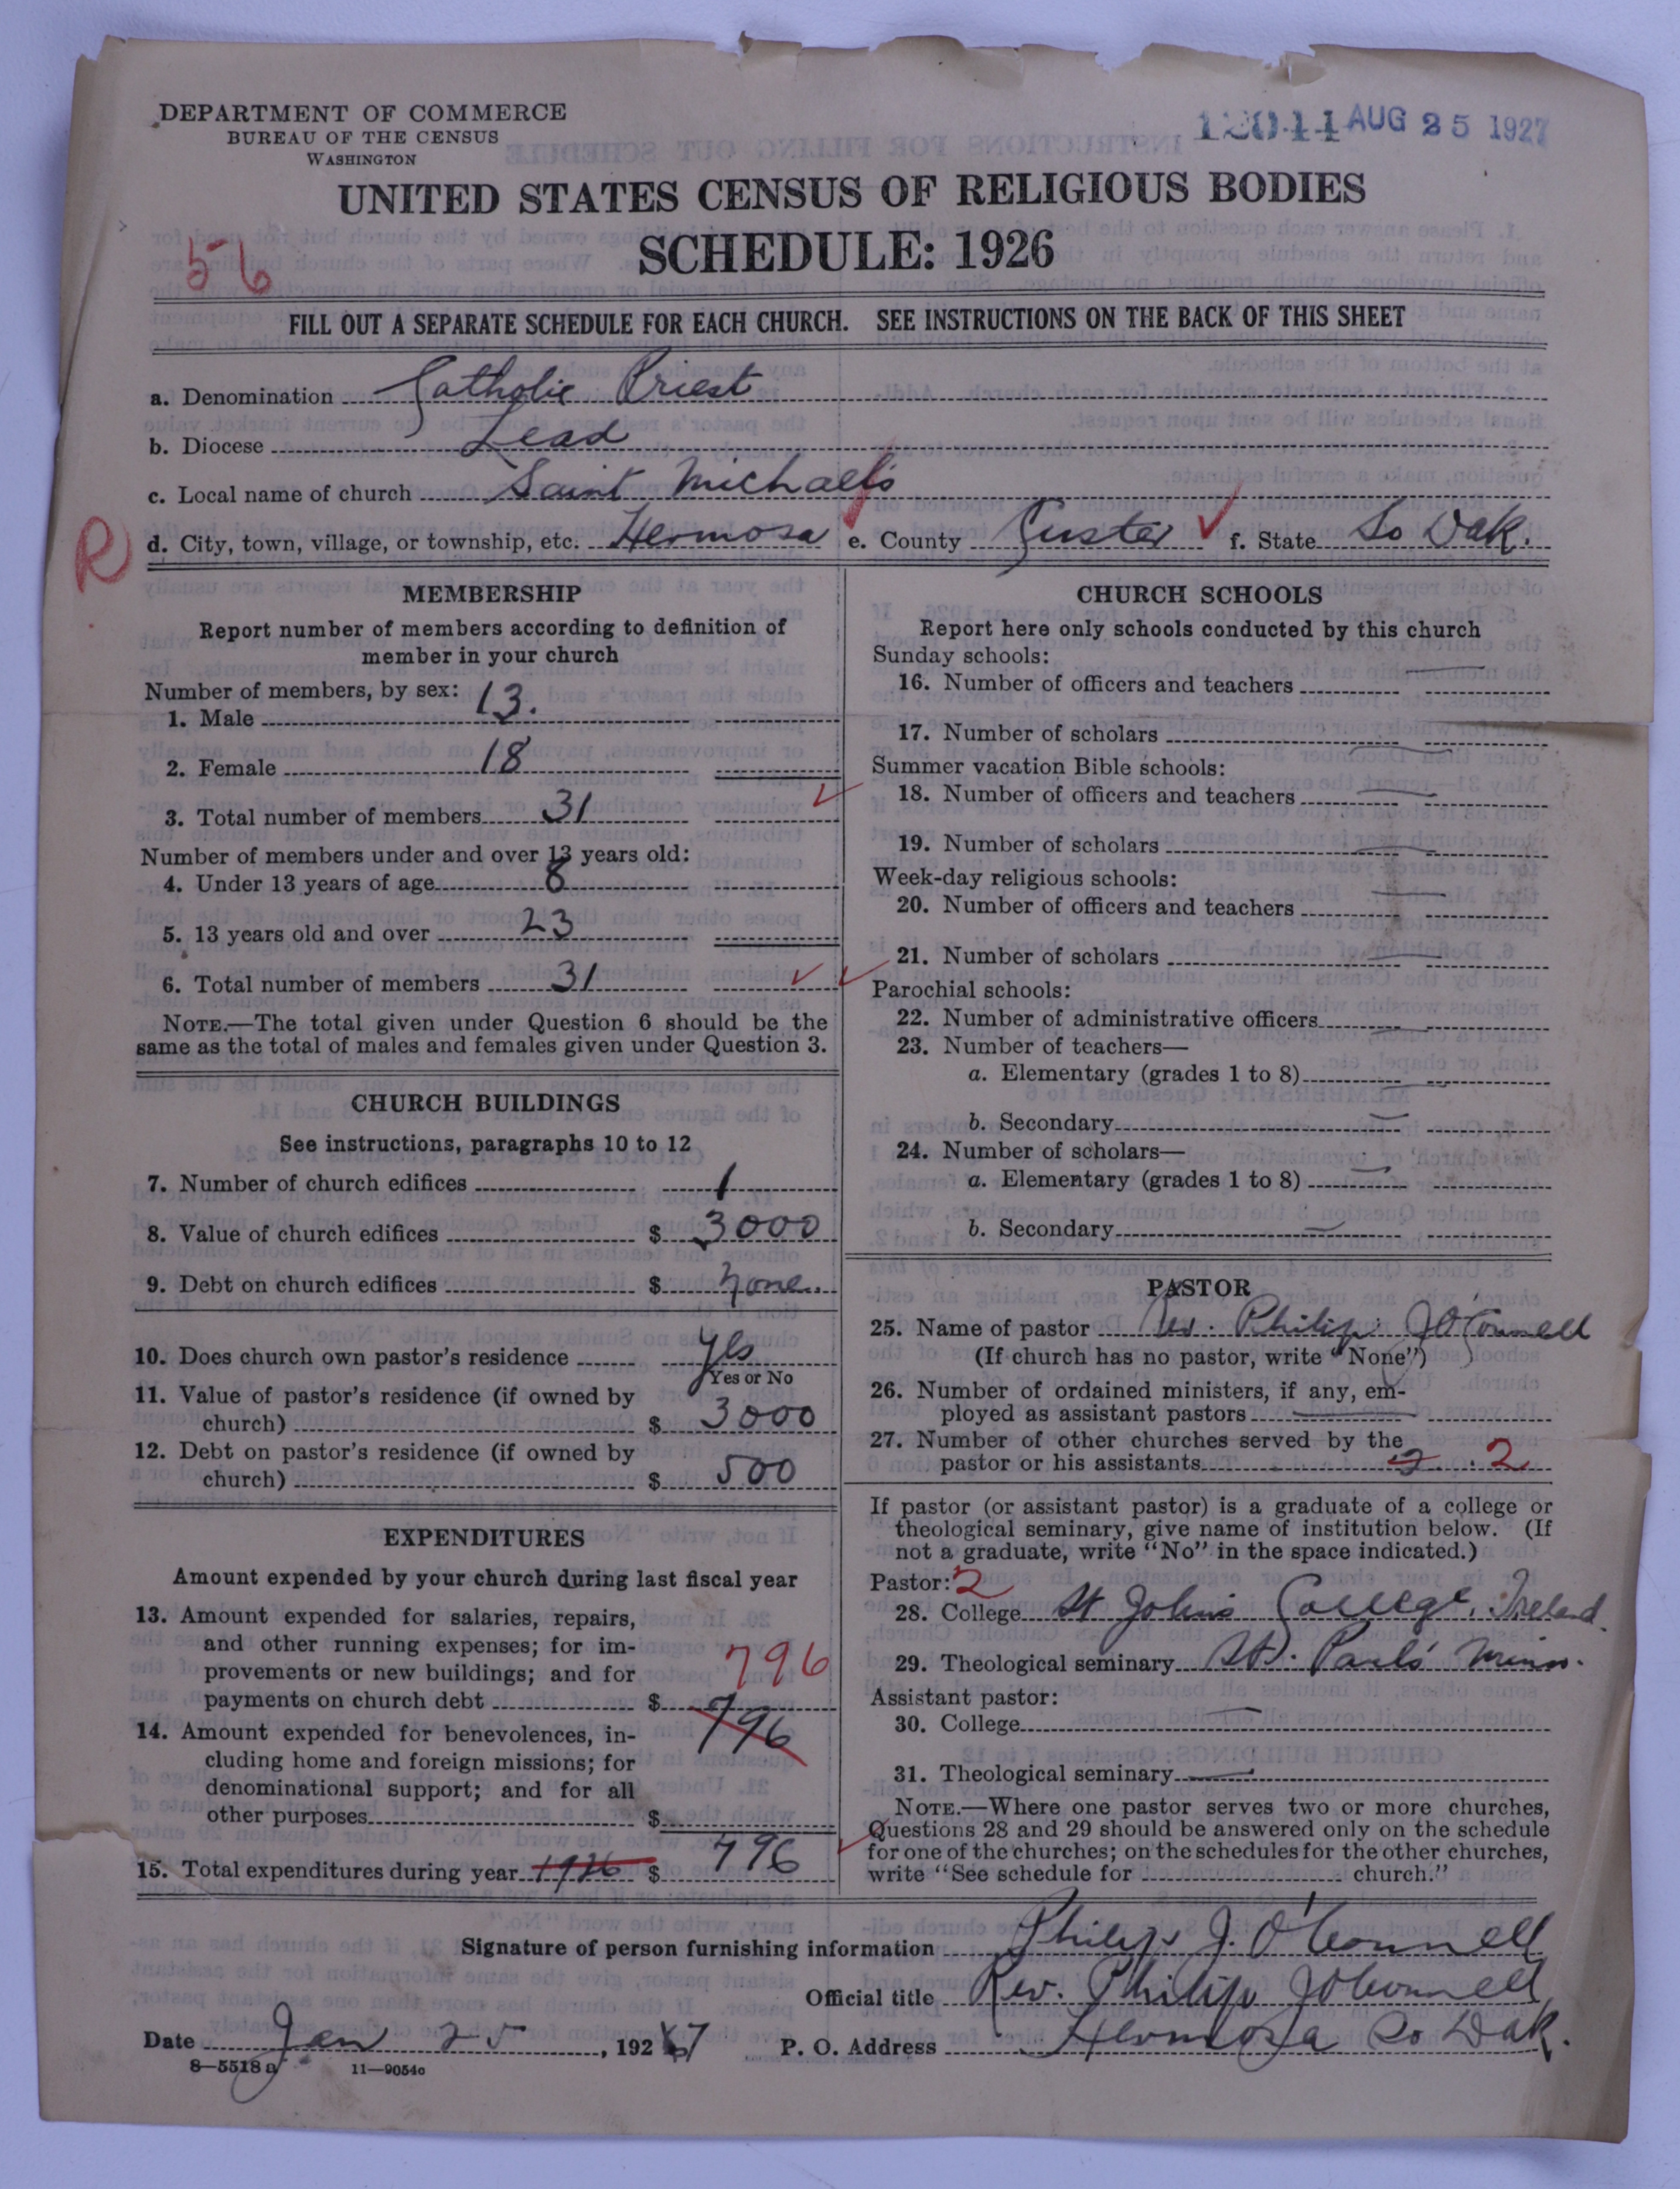 DEPARTMENT OF COMMERCE
BUREAU OF THE CENSUS
WASHINGTON
12044 AUG 25 1927
UNITED STATES CENSUS OF RELIGIOUS BODIES
SCHEDULE: 1926
56
FILL OUT A SEPARATE SCHEDULE FOR EACH CHURCH. SEE INSTRUCTIONS ON THE BACK OF THIS SHEET
a. Denomination Catholic Priest
b. Diocese Lead
c. Local name of church Saint Michael's
R
d. City, town, village, or township, etc. Hermosa e. County Custer f. State So Dak.
MEMBERSHIP
Report number of members according to definition of
member in your church
Number of members, by sex:
1. Male 13.
2. Female 18
3. Total number of members 31
Number of members under and over 13 years old:
4. Under 13 years of age 8
5. 13 years old and over 23
6. Total number of members 31
NOTE.—The total given under Question 6 should be the
same as the total of males and females given under Question 3.
CHURCH BUILDINGS
See instructions, paragraphs 10 to 12
7. Number of church edifices 1
8. Value of church edifices $ 3000
9. Debt on church edifices $ none.
10. Does church own pastor's residence yes
Yes or No
11. Value of pastor's residence (if owned by
church) $ 3000
12. Debt on pastor's residence (if owned by
church) $ 500
EXPENDITURES
Amount expended by your church during last fiscal year
13. Amount expended for salaries, repairs,
and other running expenses; for im-
provements or new buildings; and for 796
payments on church debt $ 796
14. Amount expended for benevolences, in-
cluding home and foreign missions; for
denominational support; and for all
other purposes $
15. Total expenditures during year 1926 $ 796
CHURCH SCHOOLS
Report here only schools conducted by this church
Sunday schools:
16. Number of officers and teachers —
17. Number of scholars —
Summer vacation Bible schools:
18. Number of officers and teachers —
19. Number of scholars —
Week-day religious schools:
20. Number of officers and teachers —
21. Number of scholars —
Parochial schools:
22. Number of administrative officers —
23. Number of teachers—
a. Elementary (grades 1 to 8) —
b. Secondary —
24. Number of scholars—
a. Elementary (grades 1 to 8) —
b. Secondary —
PASTOR
25. Name of pastor Rev. Philip J O'Connell
(If church has no pastor, write "None")
26. Number of ordained ministers, if any, em-
ployed as assistant pastors —
27. Number of other churches served by the
pastor or his assistants 2 2
If pastor (or assistant pastor) is a graduate of a college or
theological seminary, give name of institution below. (If
not a graduate, write "No" in the space indicated.)
Pastor: 2
28. College St Johns College, Ireland.
29. Theological seminary St. Pauls Minn.
Assistant pastor:
30. College —
31. Theological seminary —
NOTE.—Where one pastor serves two or more churches,
Questions 28 and 29 should be answered only on the schedule
for one of the churches; on the schedules for the other churches,
write "See schedule for church."
Signature of person furnishing information Philip J. O'Connell
Official title Rev. Philip J O'Connell
Date Jan 25, 1927 P. O. Address Hermosa So Dak.
8—5518 a 11—9054c